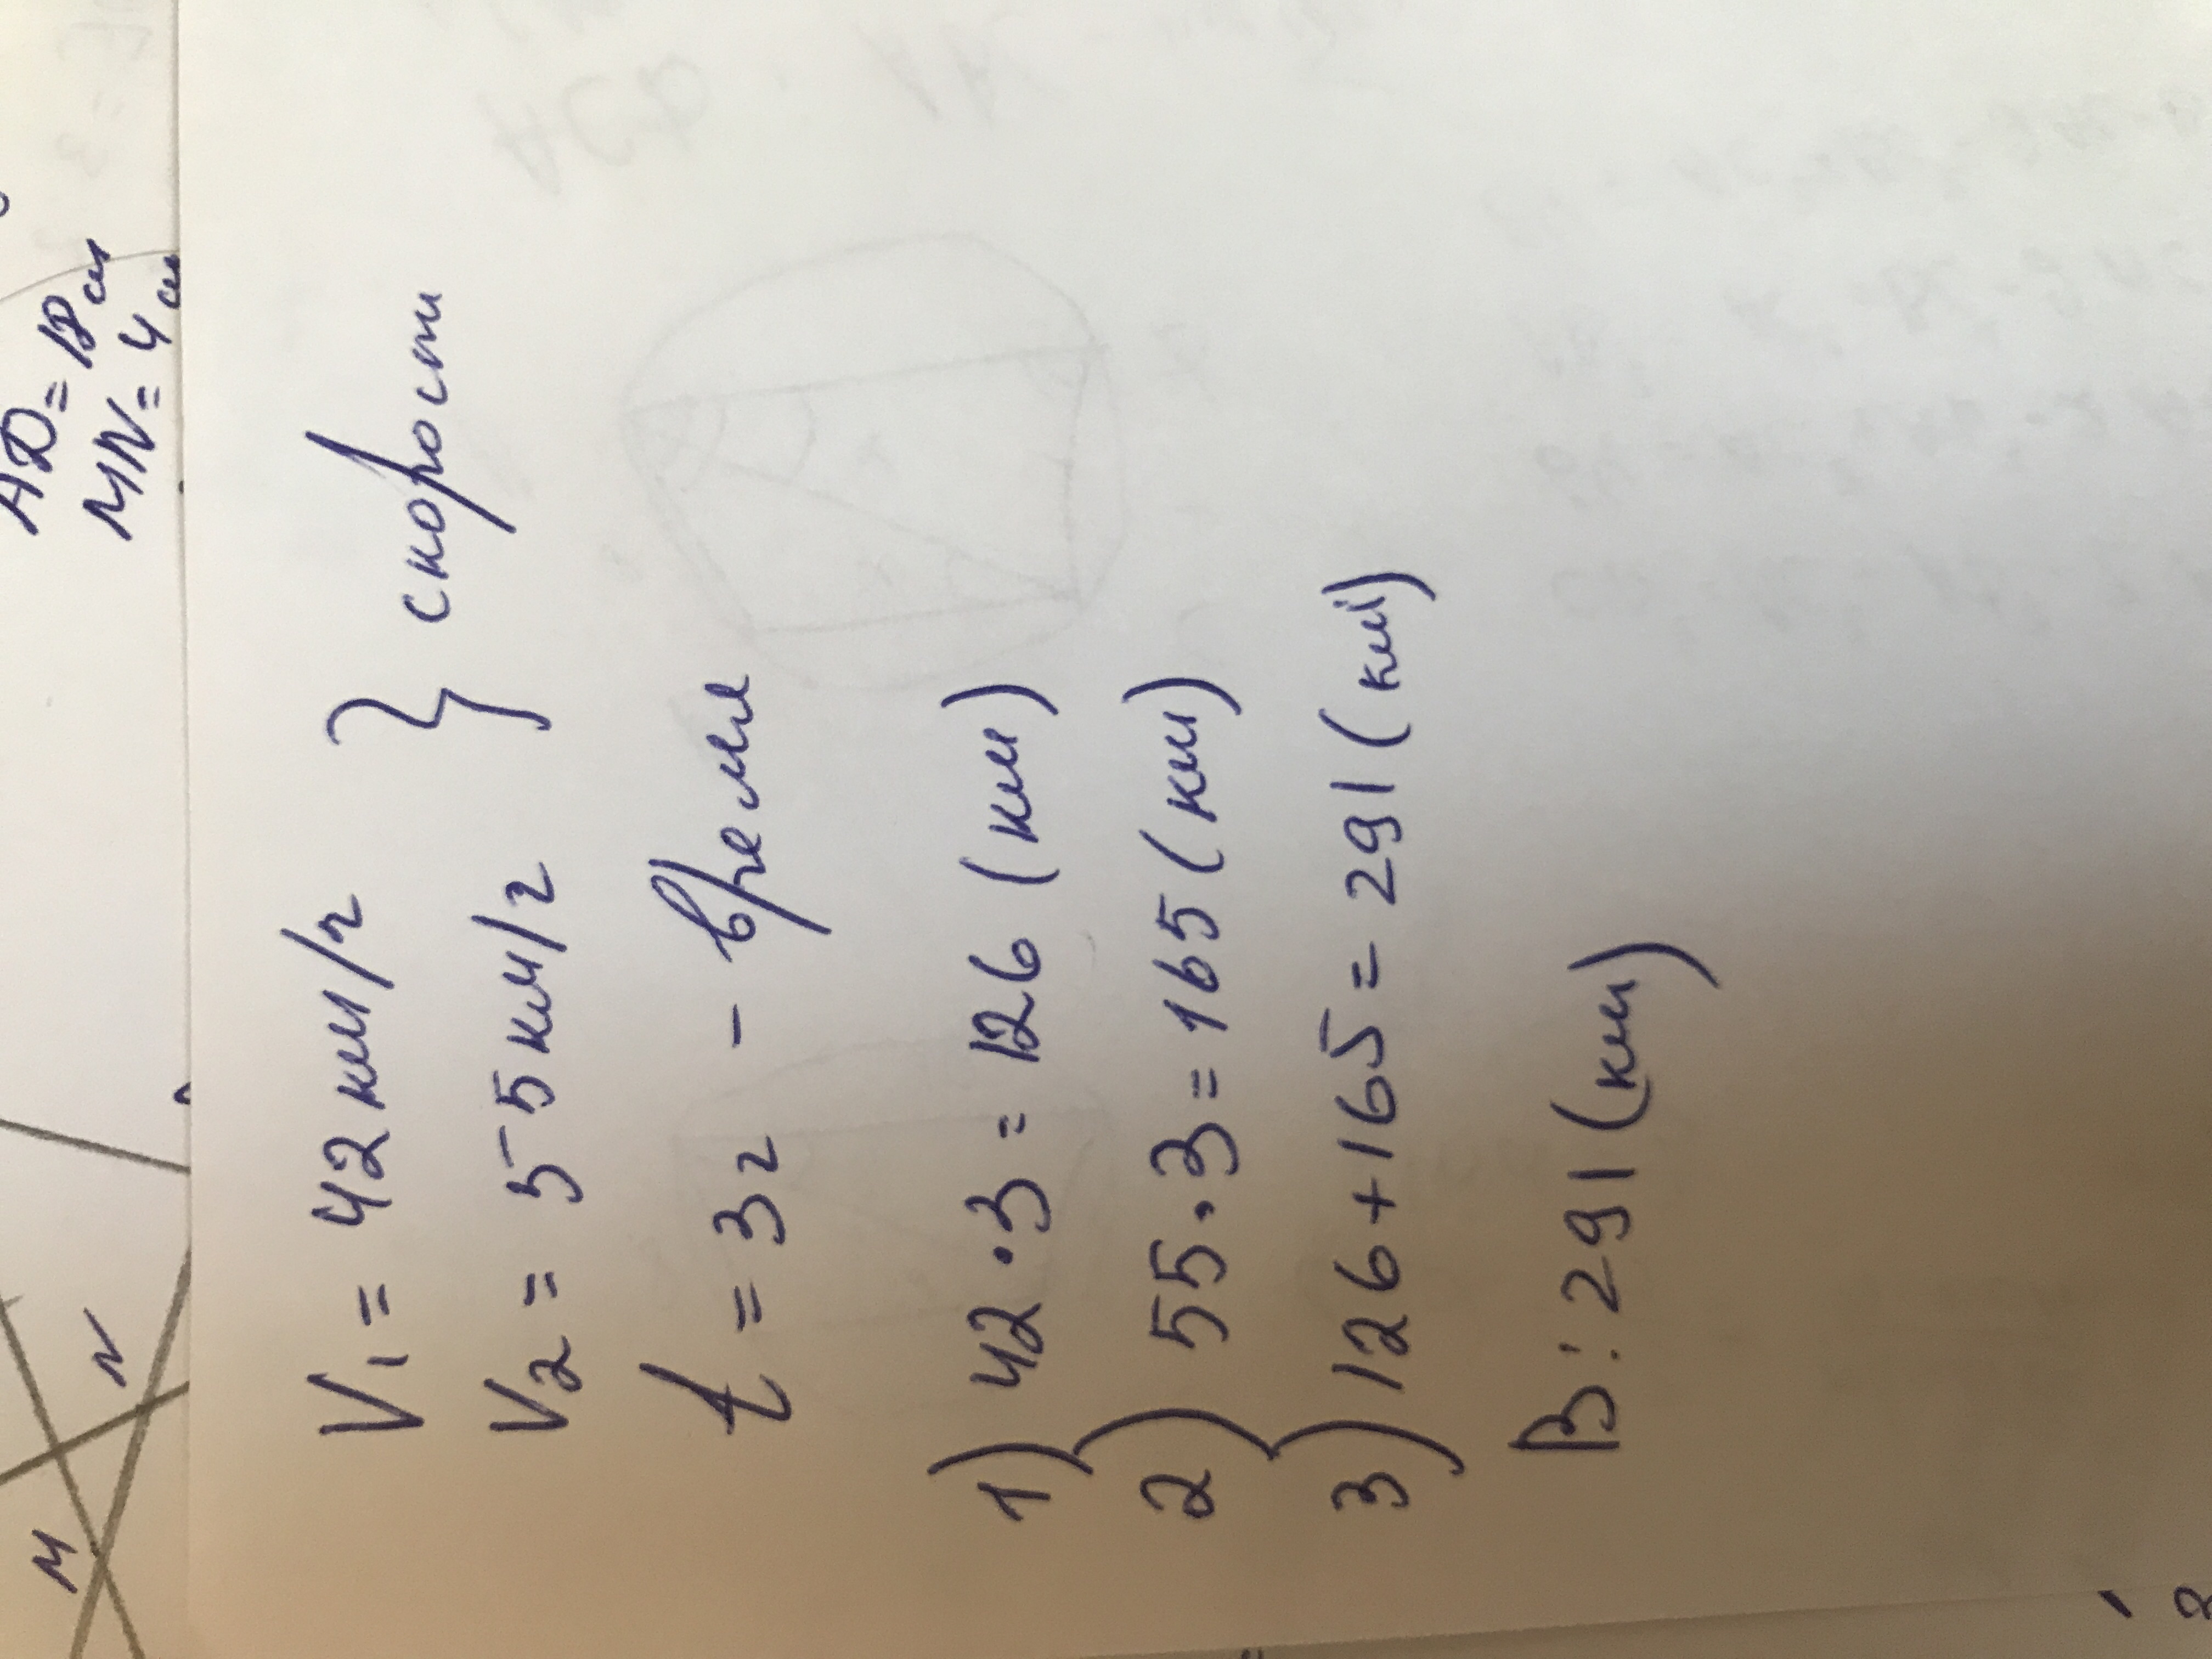 AD = 18 см
MN = 4 см
M
N
V₁ = 42 км/г
V₂ = 55 км/г
} скорост
t = 3г - время
1) 42 · 3 = 126 (км)
2) 55 · 3 = 165 (км)
3) 126 + 165 = 291 (км)
В: 291 (км)